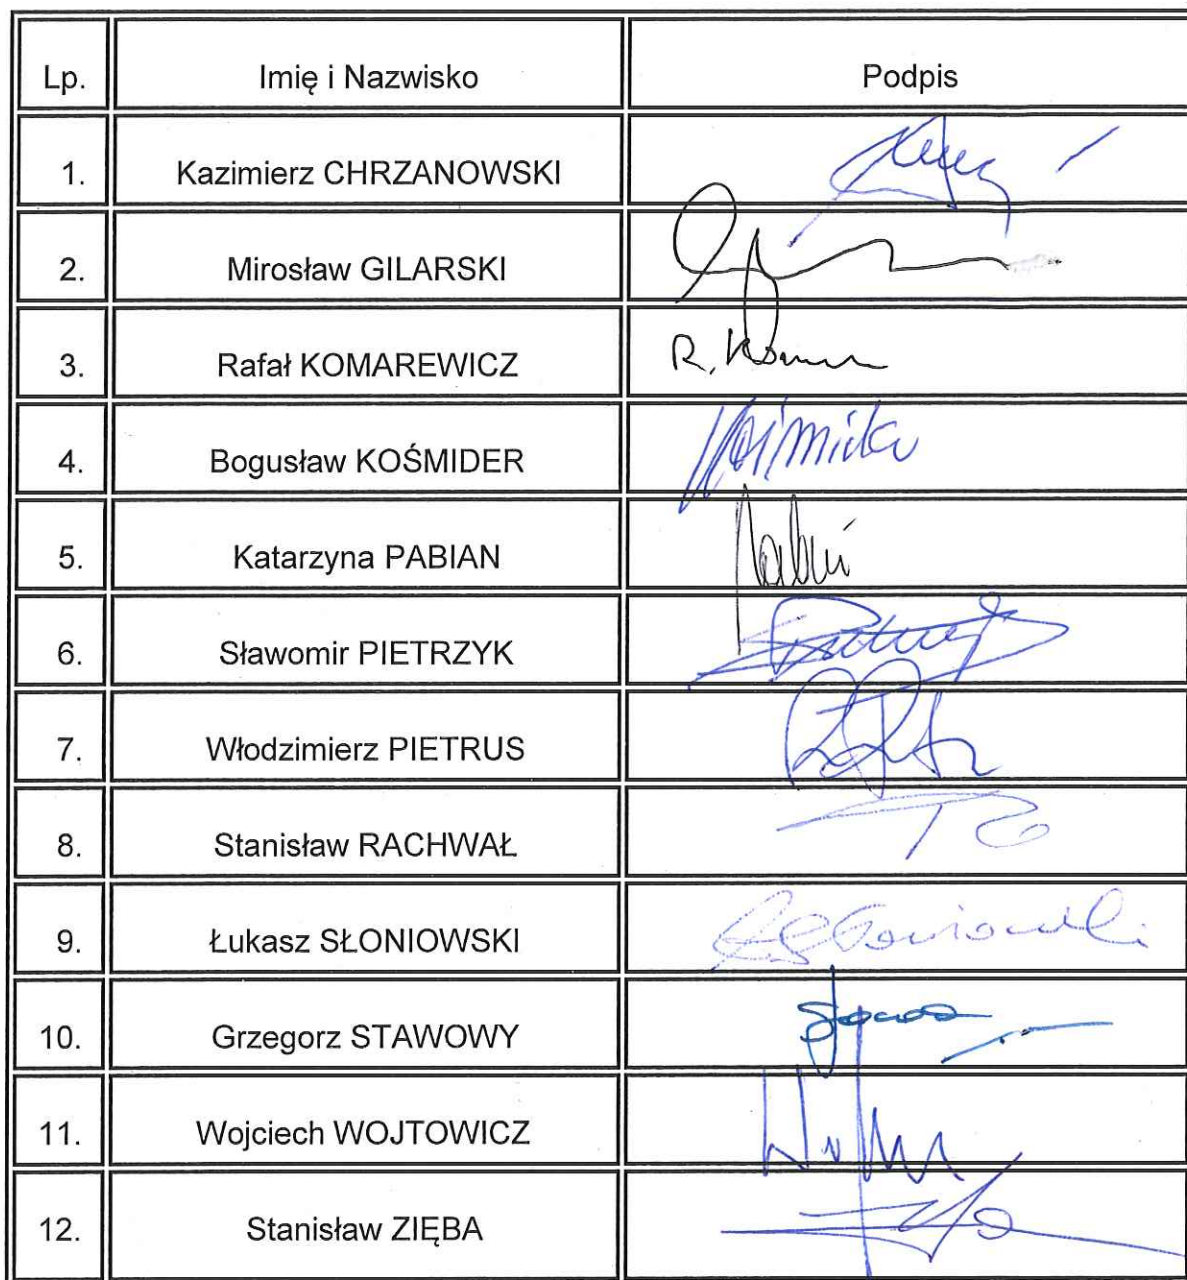 Lp. Imię i Nazwisko Podpis
1. Kazimierz CHRZANOWSKI
2. Mirosław GILARSKI
3. Rafał KOMAREWICZ R. Kom
4. Bogusław KOŚMIDER Kośmider
5. Katarzyna PABIAN
6. Sławomir PIETRZYK
7. Włodzimierz PIETRUS
8. Stanisław RACHWAŁ
9. Łukasz SŁONIOWSKI Słoniowski
10. Grzegorz STAWOWY
11. Wojciech WOJTOWICZ
12. Stanisław ZIĘBA